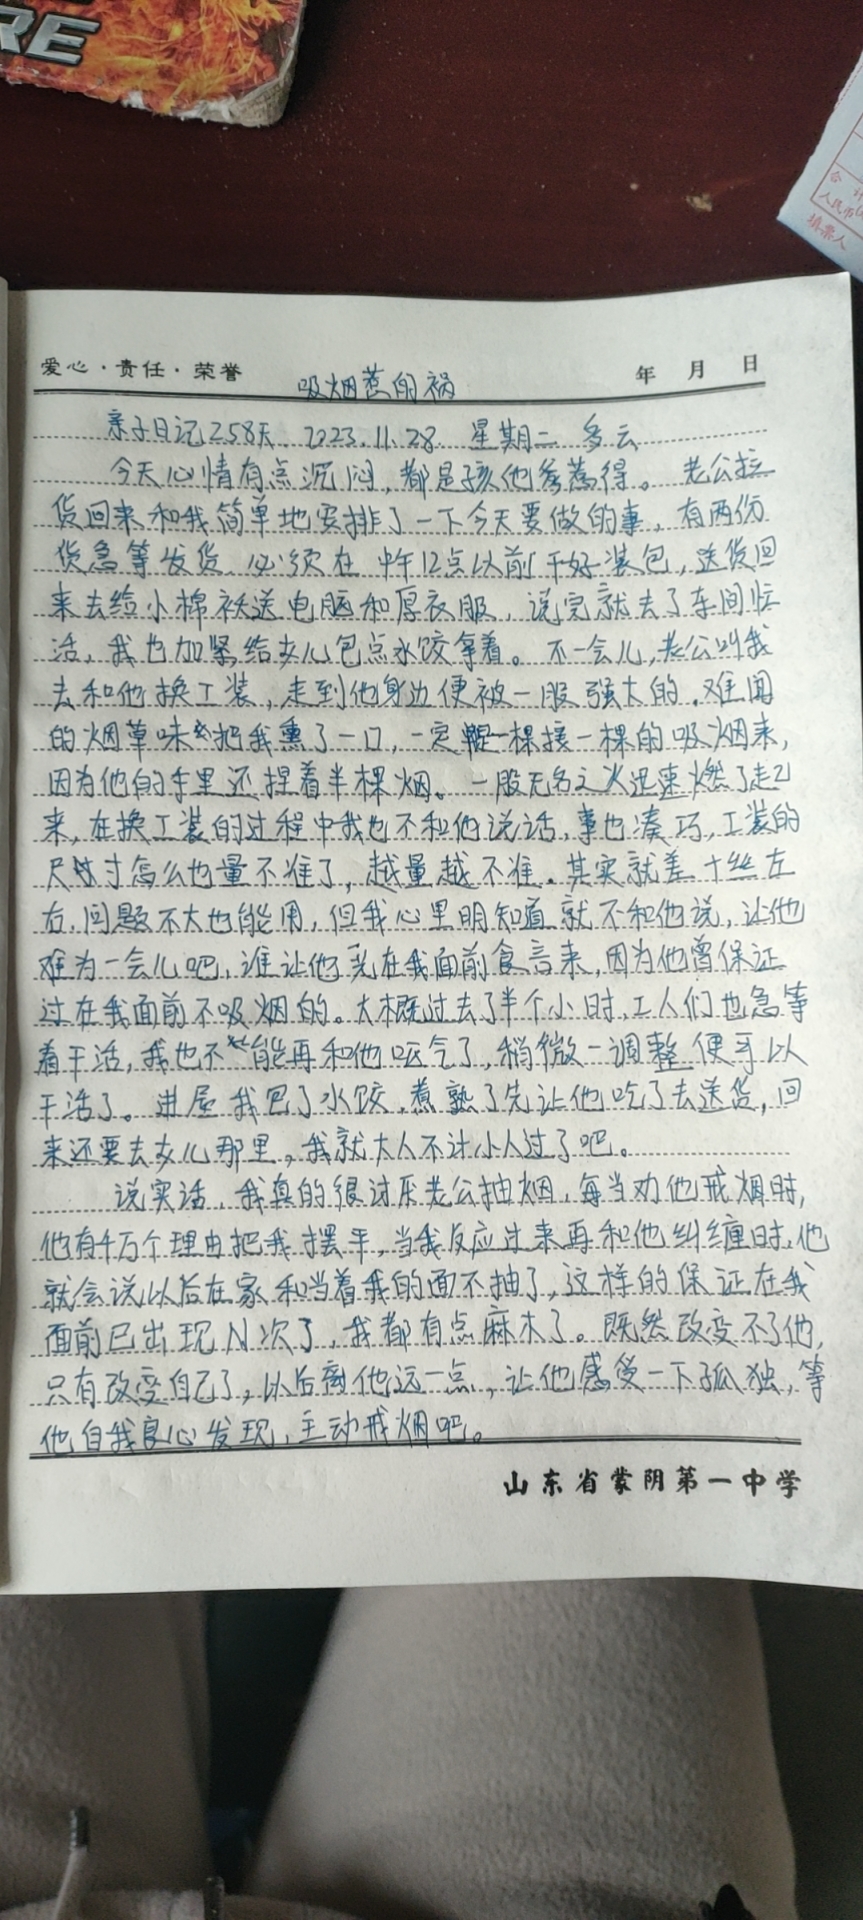 RE
合计
人民币
填票人
爱心·责任·荣誉 年 月 日
吸烟惹的祸
亲子日记258天 2023.11.28 星期二 多云
今天心情有点沉闷,都是孩他爹惹得。老公拉
货回来和我简单地安排了一下今天要做的事,有两份
货急等发货,必须在中午12点以前干好装包,送货回
来去给小棉袄送电脑和厚衣服,说完就去了车间忙
活,我也加紧给女儿包点水饺拿着。不一会儿,老公叫我
去和他换工装,走到他身边便被一股强大的,难闻
的烟草味把我熏了一口,一定是一棵接一棵的吸烟来,
因为他的手里还捏着半棵烟。一股无名之火迅速燃了起
来,在换工装的过程中我也不和他说话,事也凑巧,工装的
尺寸怎么也量不准了,越量越不准。其实就差十丝左
右,问题不大也能用,但我心里明知道就不和他说,让他
难为一会儿吧,谁让他先在我面前食言来,因为他曾保证
过在我面前不吸烟的。大概过去了半个小时,工人们也急等
着干活,我也不能再和他呕气了,稍微一调整便可以
干活了。进屋我包了水饺,煮熟了先让他吃了去送货,回
来还要去女儿那里,我就大人不计小人过了吧。
说实话,我真的很讨厌老公抽烟,每当劝他戒烟时,
他有千万个理由把我摆平,当我反应过来再和他纠缠时,他
就会说以后在家和当着我的面不抽了,这样的保证在我
面前已出现N次了,我都有点麻木了。既然改变不了他,
只有改变自己了,以后离他远一点,让他感受一下孤独,等
他自我良心发现,主动戒烟吧。
山东省蒙阴第一中学